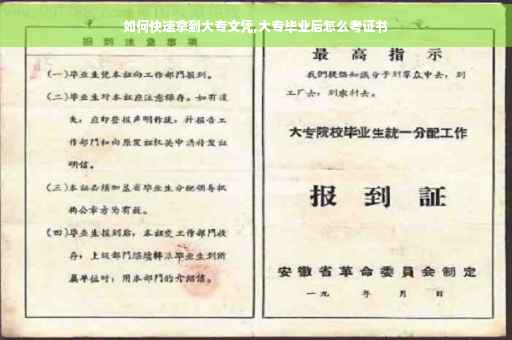 如何快速拿到大专文凭,大专毕业后怎么考证书
报到注意事项
(一)毕业生凭本证向工作部门报到。
(二)毕业生对本证应注意保存。如有遗
失,应即登报声明作废,并报告工
作部门和向原发证机关申请补发证
明信。
(三)本证必须加盖省毕业生分配领导机
构公章方为有效。
(四)毕业生报到后,本证交工作部门收
存,上级部门继续转派毕业生到所
属单位时,用本部门的介绍信。
最高指示
我们提倡知识分子到群众中去,到
工厂去,到农村去。
大专院校毕业生统一分配工作
报到証
安徽省革命委員会制定
一九 年 月 日